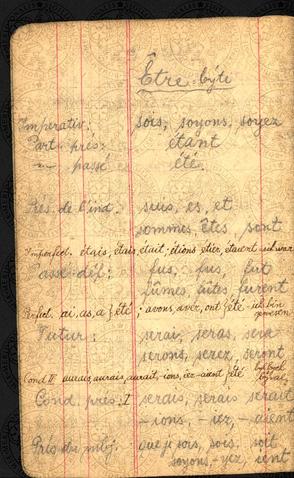 Être býti
Imperativ: sois, soyons, soyez
Part. prés: étant
~ passé été.
Prés. de l'ind. suis, es, et
sommes, êtes, sont
Imperfect. étais, étais, était, étions, étiez, étaient ich war
Passé déf; fus, fus, fut
fûmes, fûtes, furent
Perfect. ai, as, a } été ; avons, avez, ont } été - ich bin
gewesen
Futur; serai, seras, sera
serons, serez, seront
Cond II aurais, aurais, aurait, -ions, -iez -aient été
Cond. prés; I serais, serais serait
-ions, -iez, -aient
Prés du subj. que je sois, sois, soit
soyons, -yez, ient